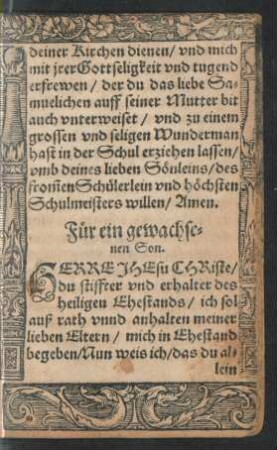 deiner Kirchen dienen/ vnd mich
mit jrer Gottseligkeit vnd tugend
erfrewen/ der du das liebe Sa-
muelichen auff seiner Mutter bit
auch vnterweiset/ vnd zu einem
grossen vnd seligen Wunderman
hast in der Schul erziehen lassen/
vmb deines lieben Sönleins/ des
fronsten Schülerlein vnd höchsten
Schulmeisters willen/ Amen.
Für ein gewachse-
nen Son.
HERRE JHEsu CHRiste/
du stiffter vnd erhalter des
heiligen Ehestands/ ich sol
auß rath vnnd anhalten meiner
lieben Eltern/ mich in Ehestand
begeben/ Nun weis ich/ das du al-
lein